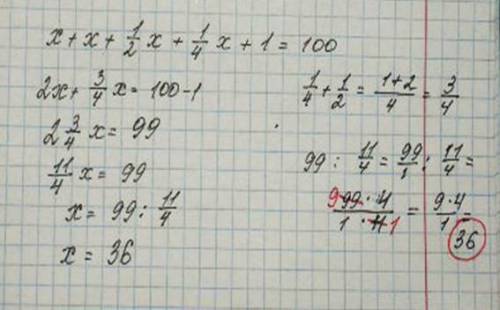 x + x + 1/2 x + 1/4 x + 1 = 100
2x + 3/4 x = 100 - 1
2 3/4 x = 99
11/4 x = 99
x = 99 : 11/4
x = 36
1/4 + 1/2 = (1+2)/4 = 3/4
99 : 11/4 = 99/1 : 11/4 =
9 99 · 4 / 1 · 11 1 = 9·4/1 =
36